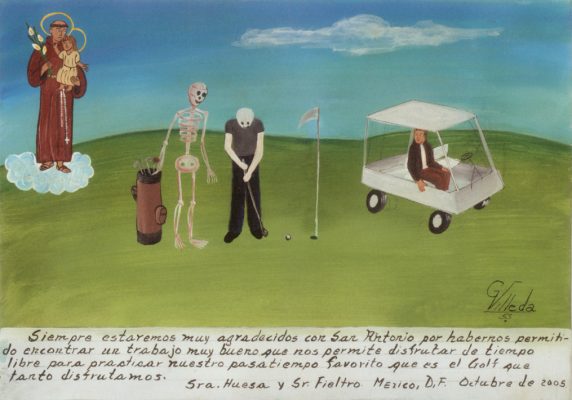 G Villeda
Siempre estaremos muy agradecidos con San Antonio por habernos permiti-
do encontrar un trabajo muy bueno que nos permite disfrutar de tiempo
libre para practicar nuestro pasatiempo favorito que es el Golf que
tanto disfrutamos. Sra. Huesa y Sr Fieltro Mexico, D,F. Octubre de 2005